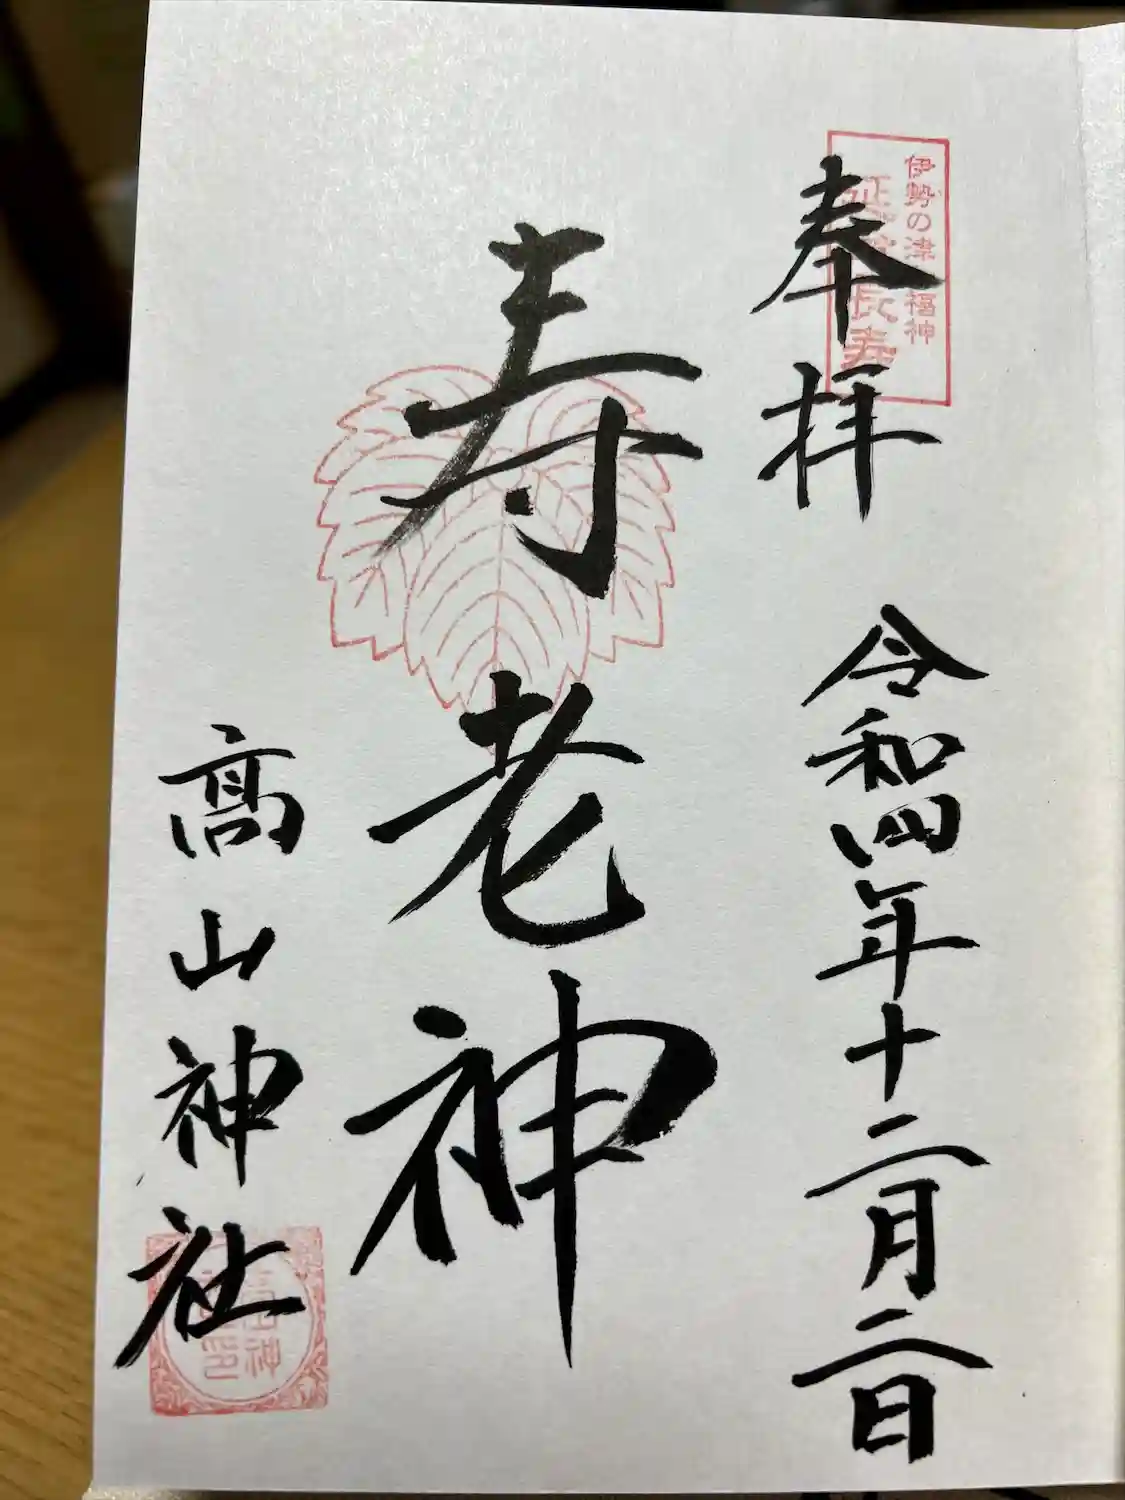 奉拝
令和四年十二月二日
伊勢の津 福神
延 長寿
寿老神
高山神社